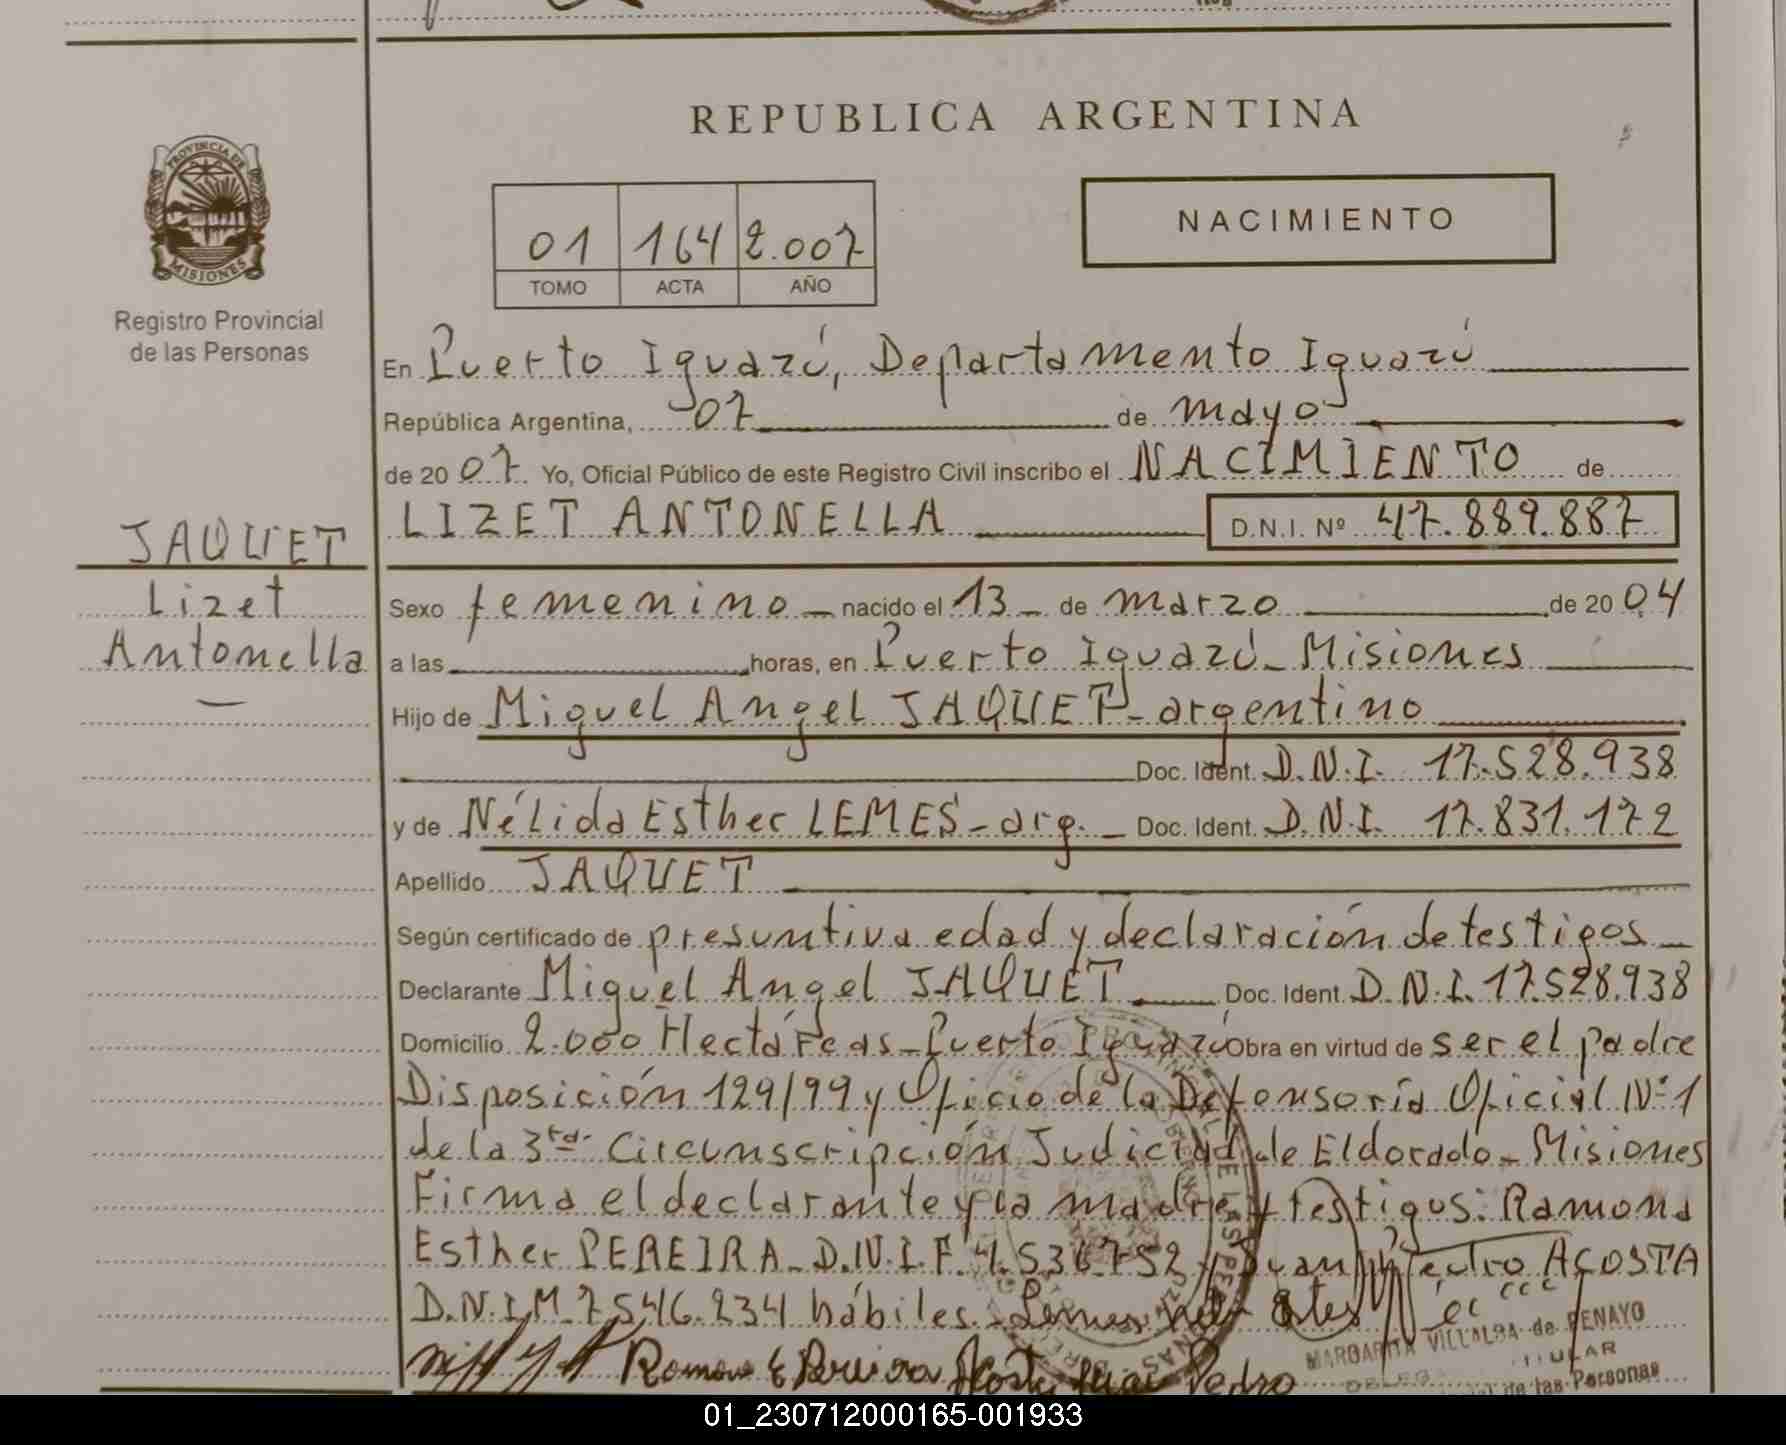 REPUBLICA ARGENTINA
PROVINCIA DE
MISIONES
Registro Provincial
de las Personas
01 164 2.007
TOMO ACTA AÑO
NACIMIENTO
En Puerto Iguazú, Departamento Iguazú
República Argentina, 07 de mayo
de 20 07 Yo, Oficial Público de este Registro Civil inscribo el NACIMIENTO de
LIZET ANTONELLA D.N.I. Nº 47.889.887
JAQUET
Lizet
Antonella
Sexo femenino nacido el 13 de marzo de 20 04
a las horas, en Puerto Iguazú - Misiones
Hijo de Miguel Angel JAQUET - argentino
Doc. Ident. D.N.I. 17.528.938
y de Nélida Esther LEMES - arg. Doc. Ident. D.N.I. 17.831.172
Apellido JAQUET
Según certificado de presuntiva edad y declaración de testigos
Declarante Miguel Angel JAQUET Doc. Ident. D.N.I. 17.528.938
Domicilio 2.000 Hectáreas - Puerto Iguazú Obra en virtud de ser el padre
Disposición 129/99 y Oficio de la Defensoría Oficial Nº 1
de la 3ra. Circunscripción Judicial de Eldorado - Misiones
Firma el declarante y la madre y testigos: Ramona
Esther PEREIRA - D.N.I.F. 4.536.752 y Juan Pedro ACOSTA
D.N.I.M. 7.546.234 hábiles.
Pedro
MARGARITA VILLALBA de PENAYO
TITULAR
de las Personas
01_230712000165-001933